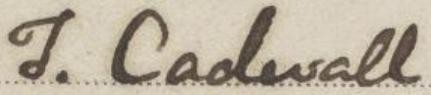 T. Cadwall